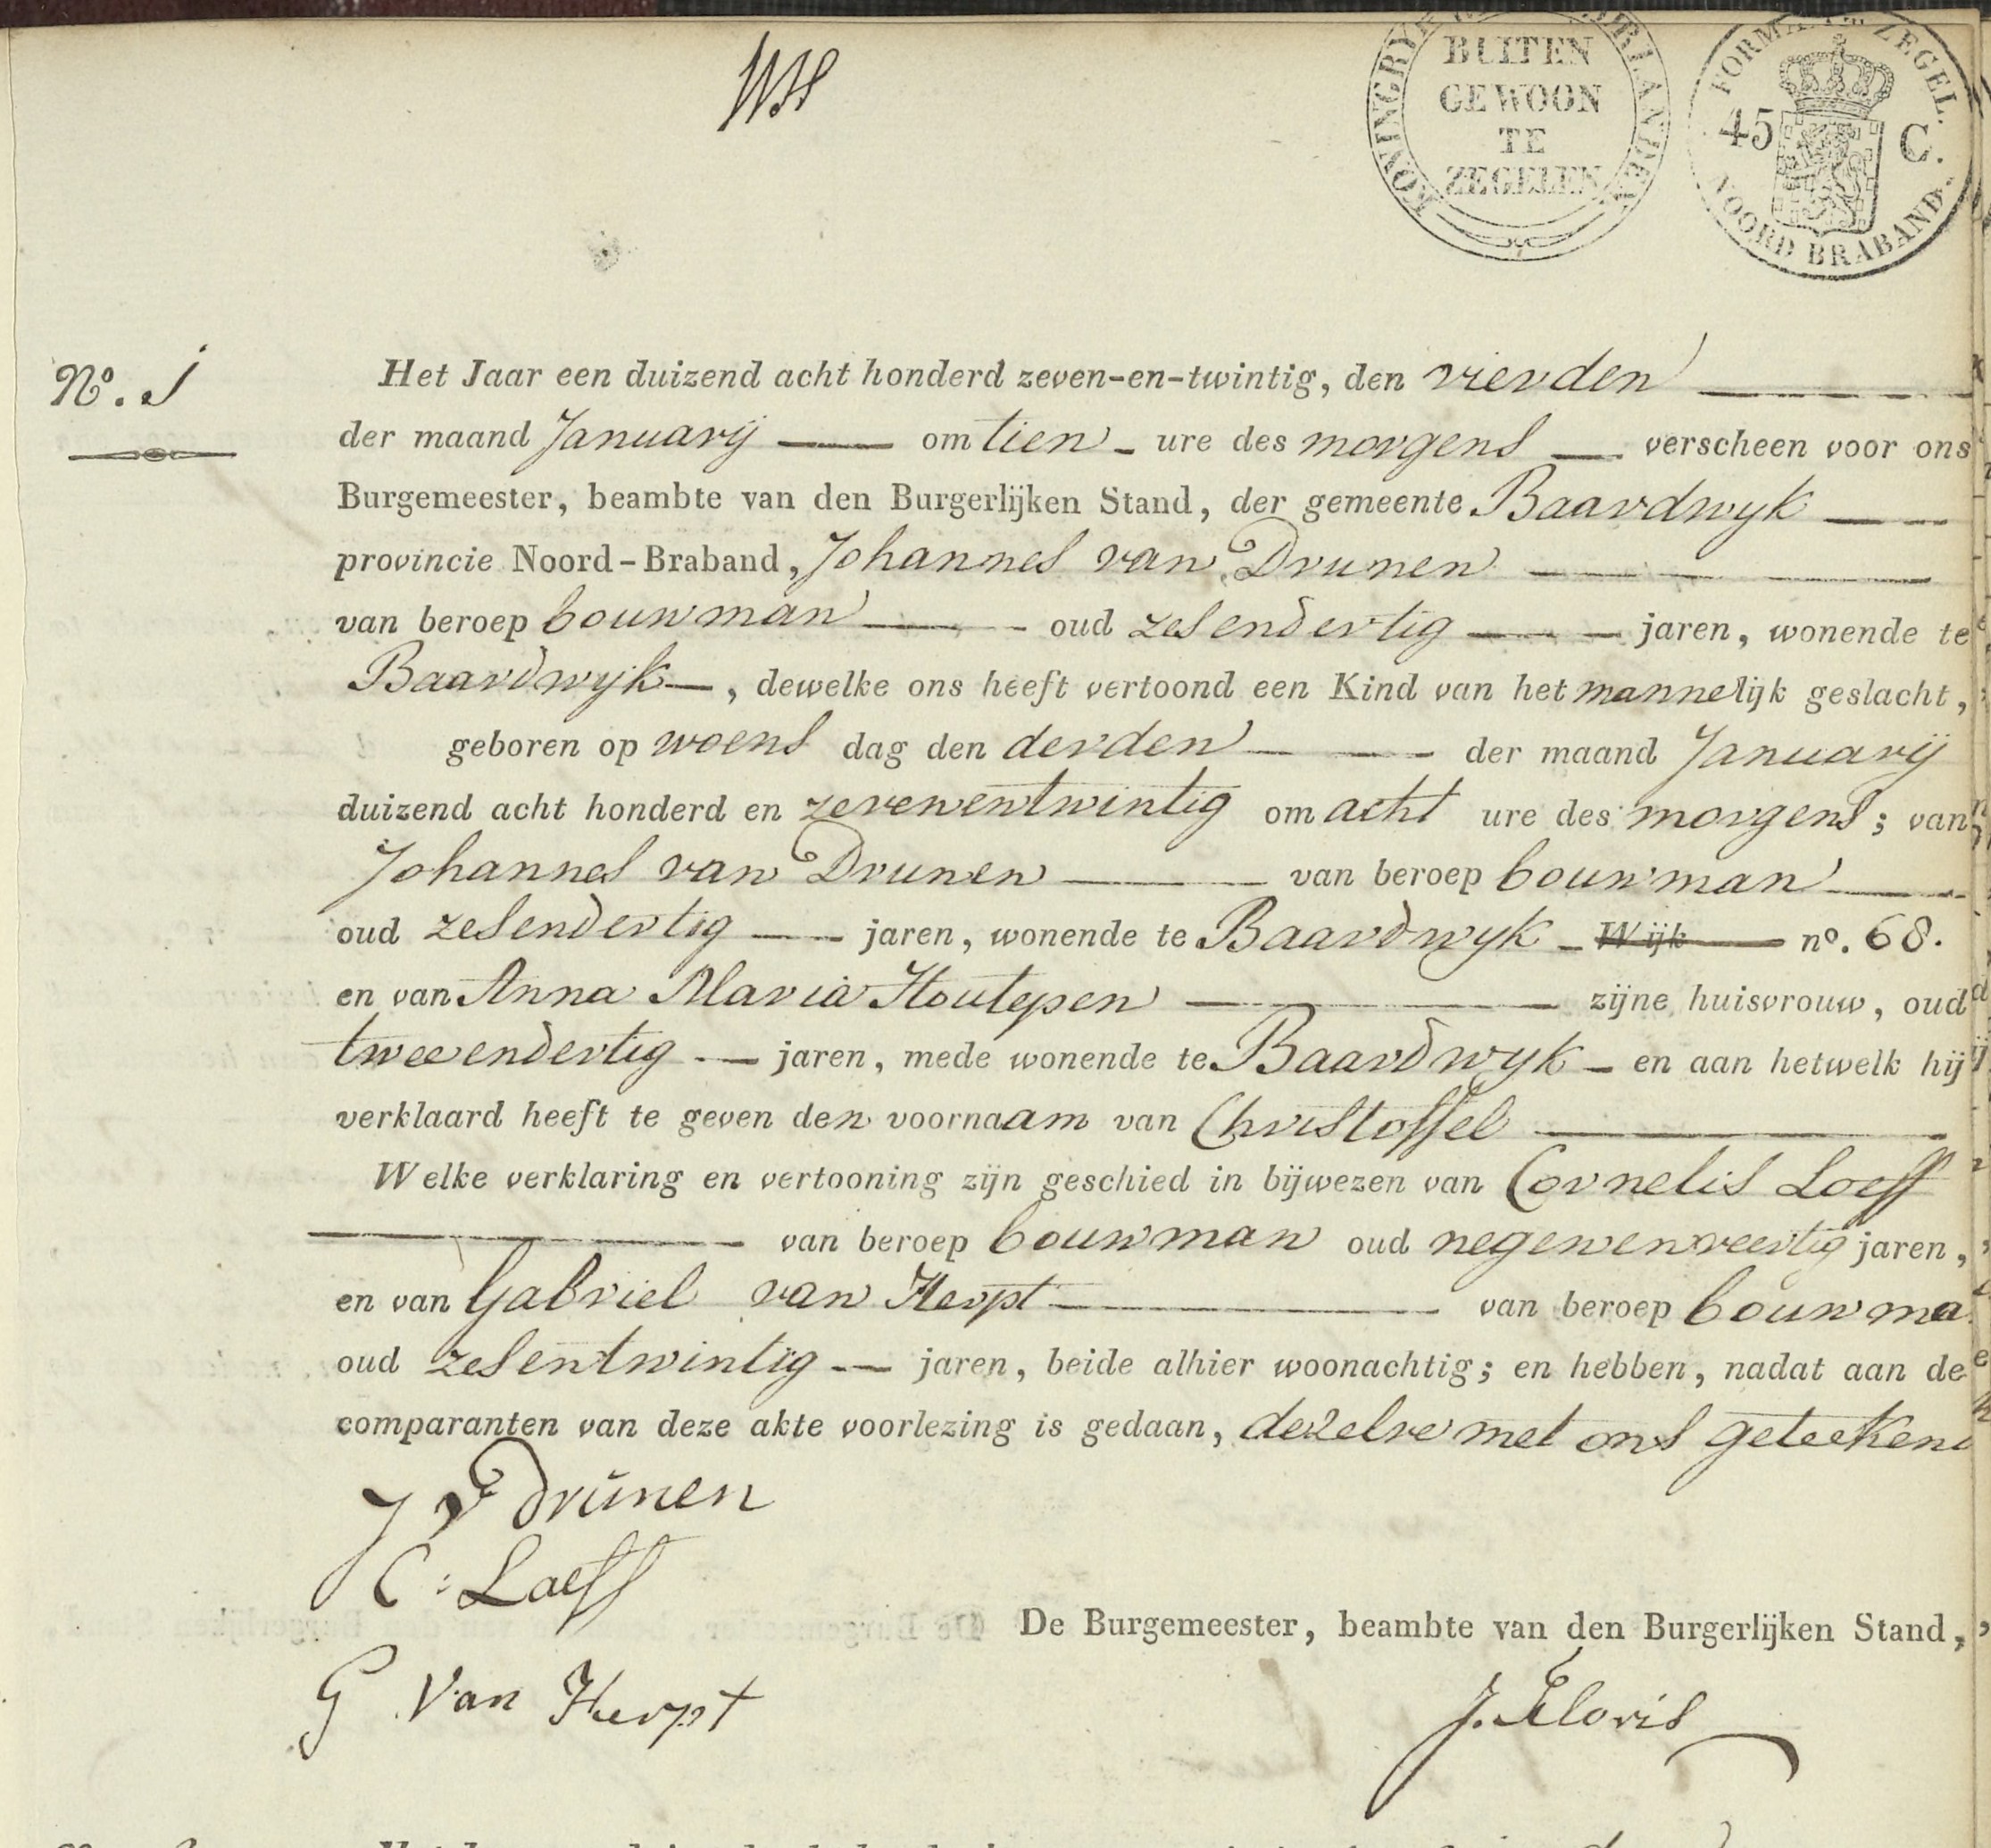 KONINGRYK DER NEDERLANDEN
BUITEN
GEWOON
TE
ZEGELEN
FORMAAT ZEGEL.
45 C.
NOORD BRABAND.
N°. 1
Het Jaar een duizend acht honderd zeven-en-twintig, den vierden
der maand Januarij om tien ure des morgens verscheen voor ons
Burgemeester, beambte van den Burgerlijken Stand, der gemeente Baardwyk
provincie Noord-Braband, Johannes van Drunen
van beroep bouwman oud zesendertig jaren, wonende te
Baardwyk, dewelke ons heeft vertoond een Kind van het mannelijk geslacht,
geboren op woens dag den derden der maand Januarij
duizend acht honderd en zevenentwintig om acht ure des morgens; van
Johannes van Drunen van beroep bouwman
oud zesendertig jaren, wonende te Baardwyk Wijk n°. 68.
en van Anna Maria Houtepen zijne huisvrouw, oud
tweeendertig jaren, mede wonende te Baardwyk en aan hetwelk hij
verklaard heeft te geven den voornaam van Christoffel
Welke verklaring en vertooning zijn geschied in bijwezen van Cornelis Loeff
van beroep bouwman oud negenenveertig jaren,
en van Gabriel van Herpt van beroep bouwma
oud zesentwintig jaren, beide alhier woonachtig; en hebben, nadat aan de
comparanten van deze akte voorlezing is gedaan, dezelve met ons geteekend
J V Drunen
C: Loeff
De Burgemeester, beambte van den Burgerlijken Stand,
G Van Herpt
J. Floris